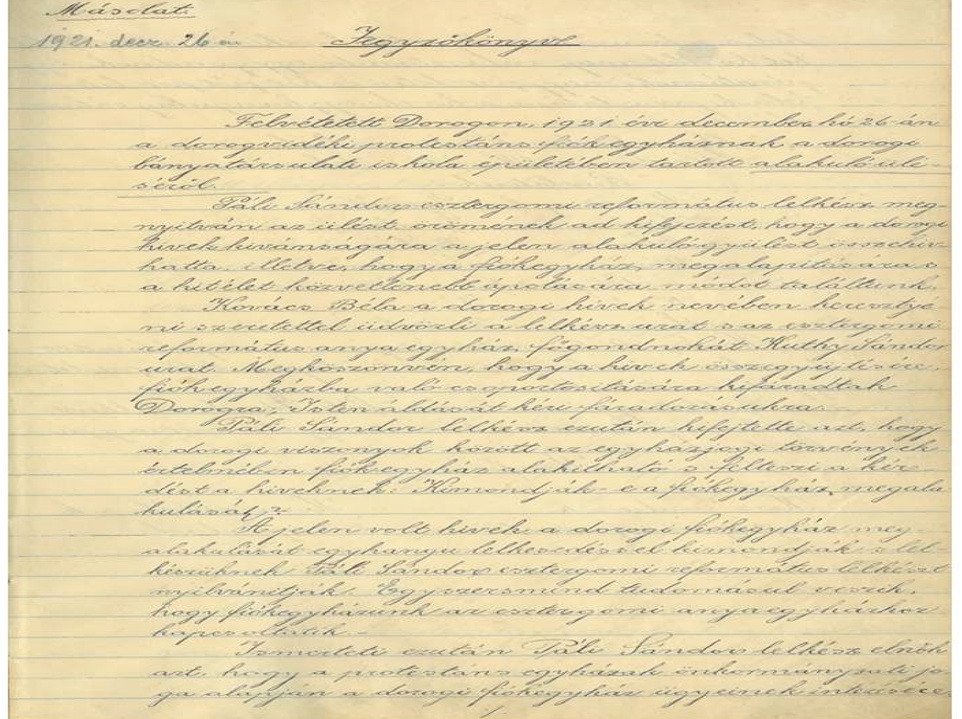 Másolat.
1921. decz. 26 án
Jegyzőkönyv
Felvétetett Dorogon, 1921 évi december hó 26-án
a dorogvidéki protestáns fiókegyháznak a dorogi
bányatársulati iskola épületében tartott alakuló ülé-
séről.
Páli Sándor esztergomi református lelkész meg-
nyitván az ülést, örömének ad kifejezést, hogy a dorogi
hivek kivánságára a jelen alakulógyülést összehiv-
hatta, illetve, hogy a fiókegyház megalapitására s
a hitélet közvetlenebb ápolására módot találtunk.
Kovács Béla a dorogi hivek nevében keresztyé-
ni szeretettel üdvözli a lelkész urat s az esztergomi
református anyaegyház főgondnokát Huthy Sándor
urat. Megköszönvén, hogy a hivek összegyüjtésére,
fiókegyházba való csoportositására kifáradtak
Dorogra, Isten áldását kéri fáradozásukra.
Páli Sándor lelkész ezután kifejtette azt, hogy
a dorogi viszonyok között az egyházjogi törvények
értelmében fiókegyház alakitható s felteszi a kér-
dést a hiveknek: Kimondják-e a fiókegyház megala-
kulását?
A jelen volt hivek a dorogi fiókegyház meg-
alakulását egyhangu lelkesedéssel kimondják s lel-
készüknek Páli Sándor esztergomi református lelkészt
nyilvánitják. Egyszersmind tudomásul veszik,
hogy fiókegyházunk az esztergomi anyaegyházhoz
kapcsoltatik.-
Ismerteti ezután Páli Sándor lelkész elnök
azt, hogy a protestáns egyházak önkormányzati jo-
ga alapján a dorogi fiókegyház ügyeinek intézésére,